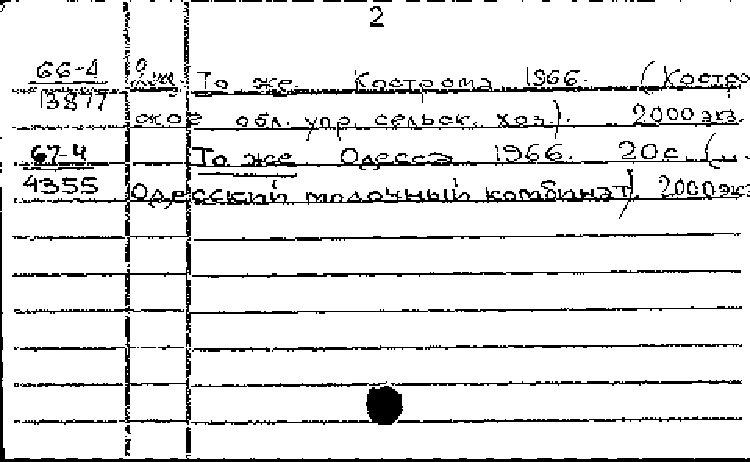 2
66-4 То же Кострома 1966. (Костро
13877 ское обл. упр. сельск. хоз). 2000 экз.
67-4 То же Одесса 1966. 20с (м.
4355 Одесский молочный комбинат). 2000 экз